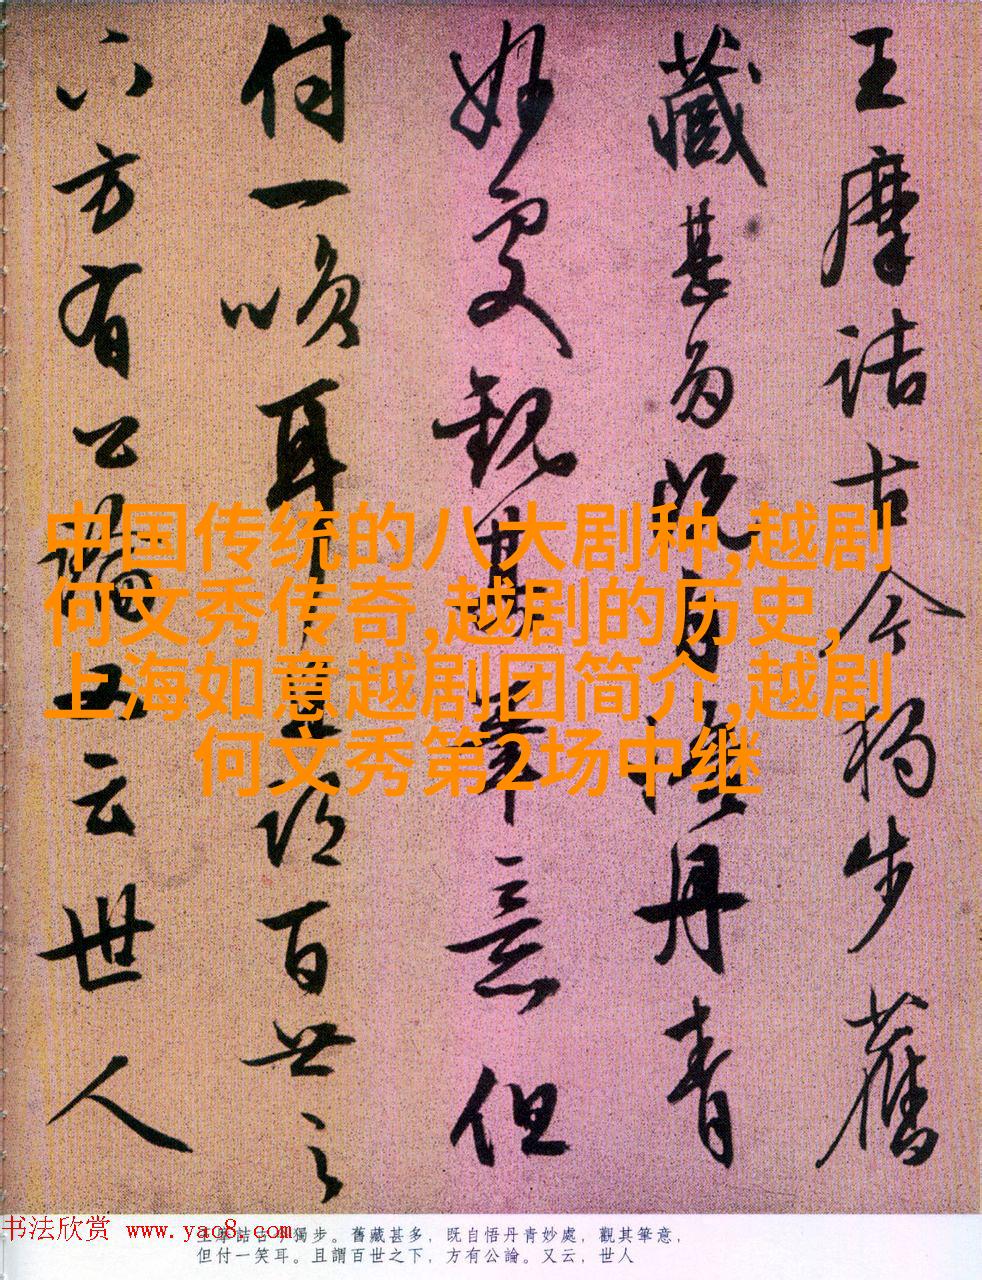 王摩詰古今獨步舊
藏甚多既自悟丹青
妙處觀其筆意但
付一笑耳且謂百世之
下方有公論又云世人
中国传统的八大剧种,越剧
何文秀传奇,越剧的历史,
上海如意越剧团简介,越剧
何文秀第2场中继
王摩詰古今獨步。舊藏甚多，既自悟丹青妙處，觀其筆意，
但付一笑耳。且謂百世之下，方有公論。又云，世人
书法欣赏 www.yac8.com